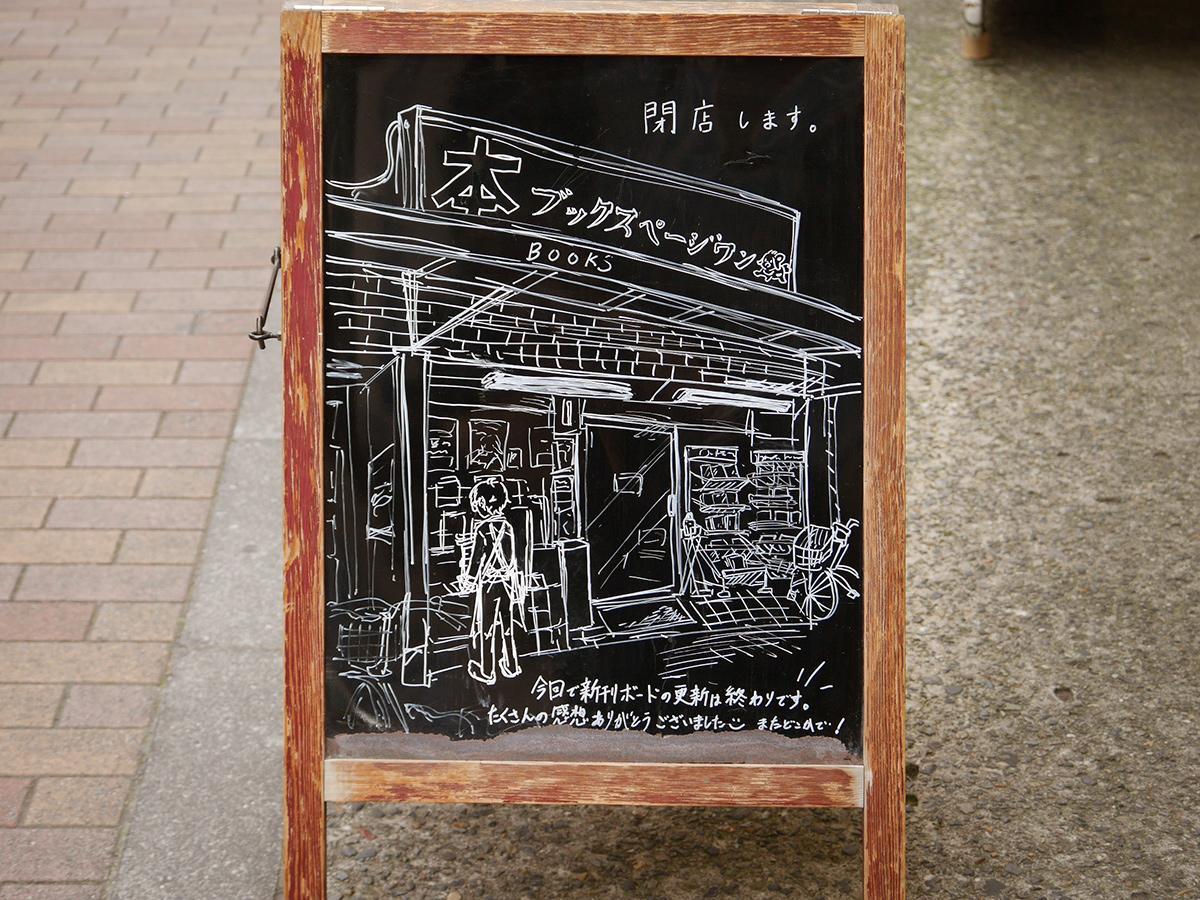 閉店します。
本 ブックスページワン
BOOKS
今回で新刊ボードの更新は終わりです。
たくさんの感想ありがとうございました またどこかで!